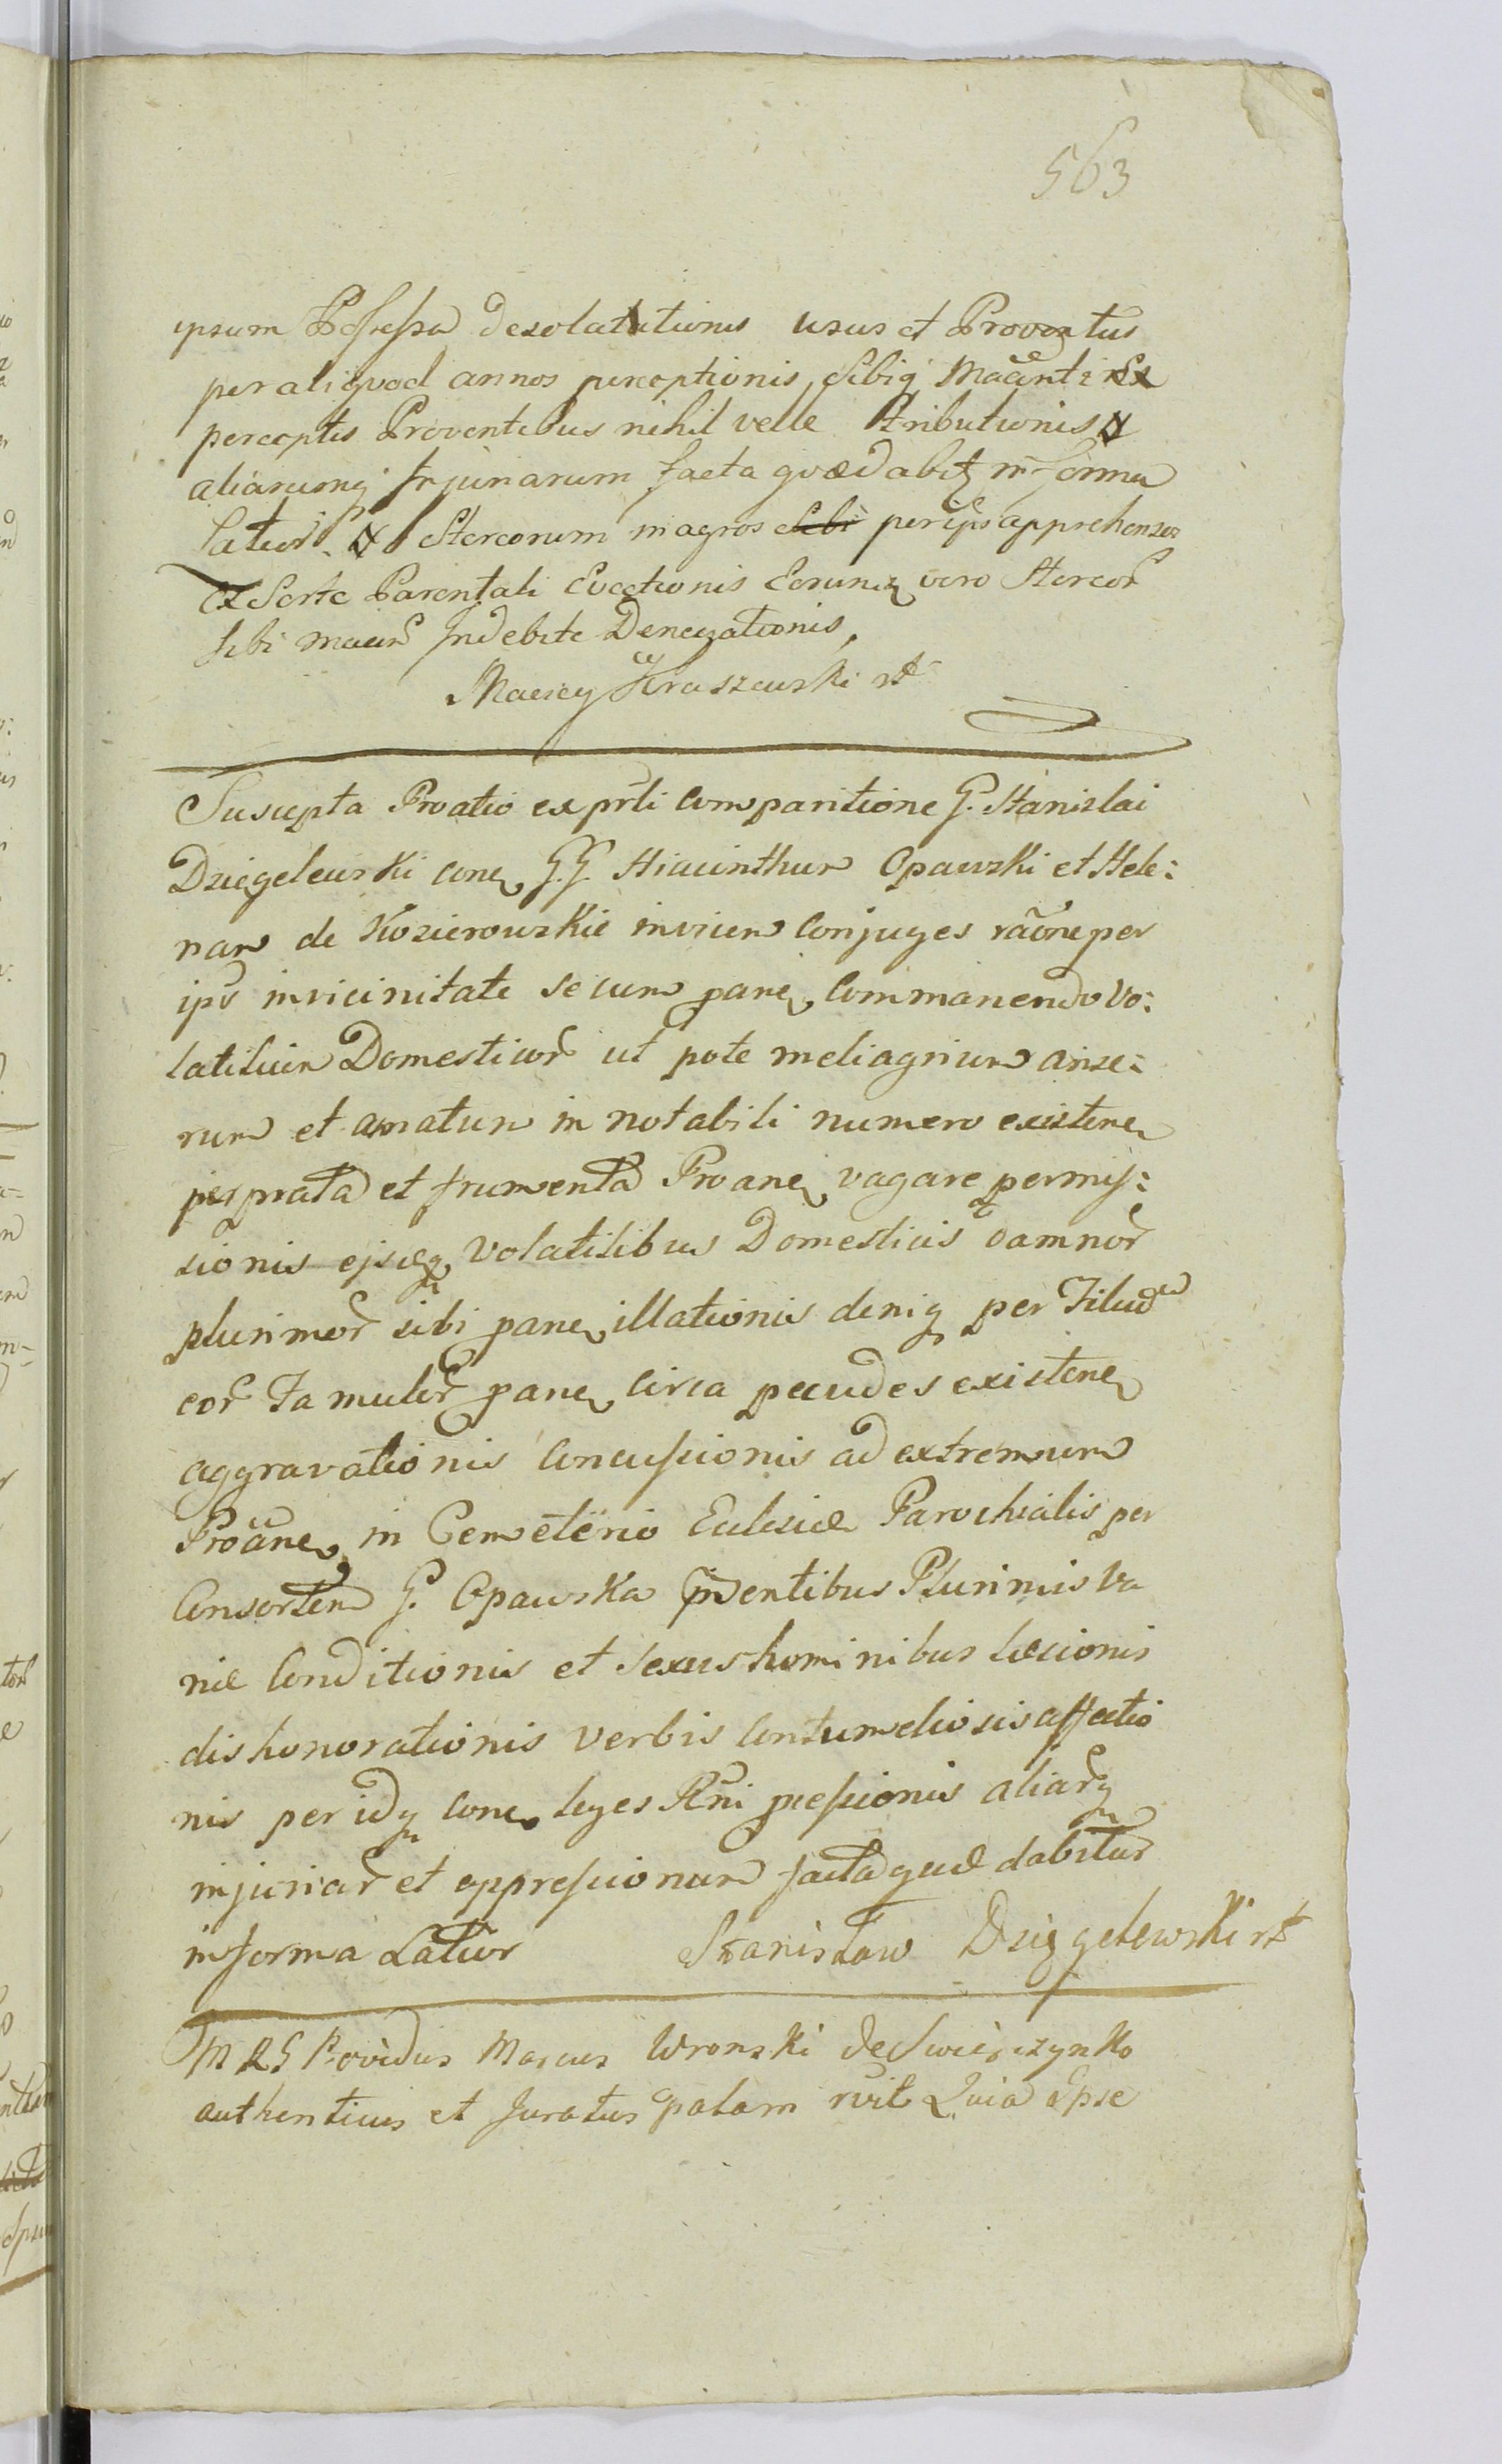 563
ipsum Possessa desolationis usus et Proventus
per aliquod annos perceptionis, sibiq Maãnti Ex
perceptis Proventibus nihil velle Attributionis
aliarumq Injuriarum facta quæ dabit͛ in forma
latior. Stercorum in agros per ips apprehensos
Ex Sorte Parentali Evectionis Eorunq vero Stercor̃
sibi maãn Indebite Denegationis,
Maciey Kraszewski
Suscepta Proatio ex prti comparitione G. Stanislai
Dzięgelewski conɋ G.G. Hiacinthum Opawski et Hele:
nam de Kosierowskie invicem Conjuges rãone per
ips in vicinitate secum pane Commanendo Vo:
latilium Domesticor̃ ut pote meliagrium anse:
rum et anatum in notabili numero existen
per prata et frumenta Proane vagare permis:
sionis ejsdq volatilibus Domesticis damnor̃
plurimor̃ sibi pane illationis deniq per Filud
eor̃ Famulor̃ pane circa pecudes existen
aggravationis Concussionis ad extremum
Proãne in Cemeterio Ecclesiæ Parochialis per
Consortem G. Opawska pñtibus Plurimis Va
riæ Conditionis et sexus hominibus læsionis
dishonorationis verbis Contumeliosis affectio
nis per idq cone leges Rñi pressionis aliarq
injuriar̃ et oppressionum facta quæ dabitur
in forma Latior Stanisław Dzięgelewski
M R S Providus Marcus Wronski de Swierczynko
authenticus et Juratus palam rvit Quia Ipse